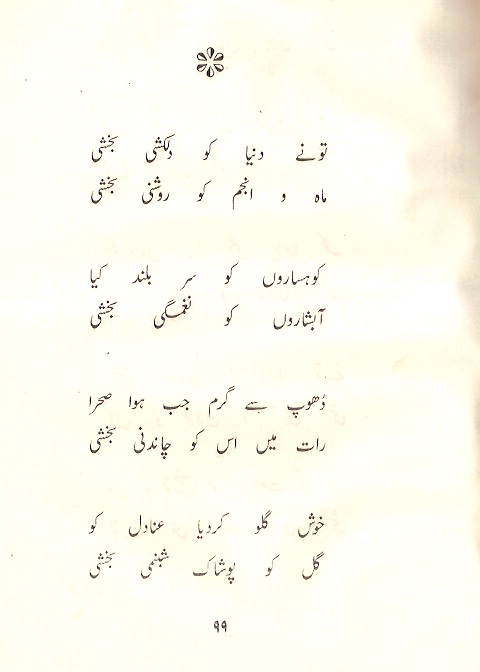 تونے دنیا کو دلکشی بخشی
ماہ و انجم کو روشنی بخشی
کوہساروں کو سر بلند کیا
آبشاروں کو نغمگی بخشی
دُھوپ سے گرم جب ہوا صحرا
رات میں اس کو چاندنی بخشی
خوش گلو کردیا عنادل کو
گل کو پوشاک شبنمی بخشی
۹۹